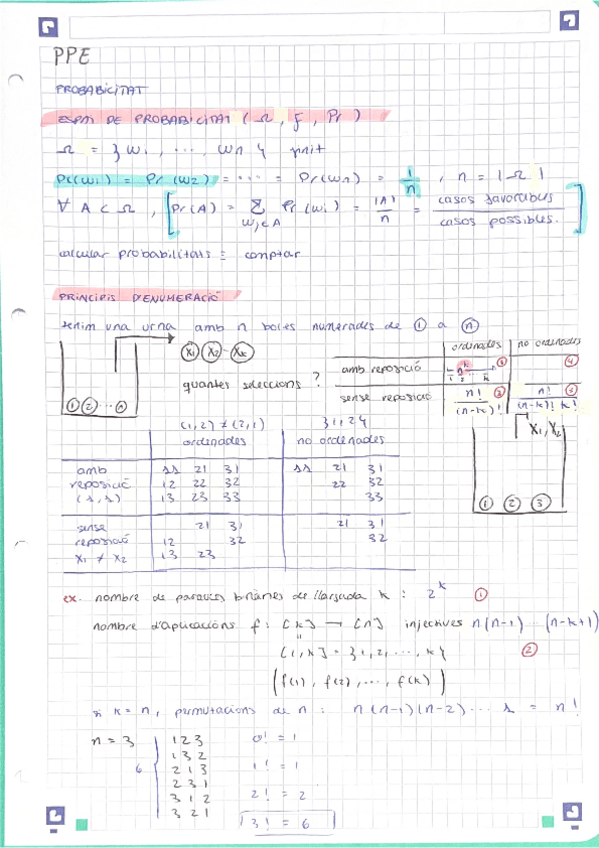 PPE
PROBABILITAT
ESPAI DE PROBABILITAT (Ω, f, Pr)
Ω = {ω₁, ..., ωn} finit
Pr(ω₁) = Pr(ω₂) = ... = Pr(ωn) = 1/n , n = |Ω|
∀ A ⊂ Ω , [Pr(A) = Σ ωi∈A Pr(ωi) = |A|/n = casos favorables / casos possibles.]
calcular probabilitats ≡ comptar
PRINCIPIS D'ENUMERACIÓ
tenim una urna amb n boles numerades de ① a ⓝ
X₁ X₂ - Xk
① ② ... ⓝ
quantes seleccions ?
ordenades no ordenades
amb reposició n^k ① ④
1 2 ... k
sense reposició n!/(n-k)! ② n!/(n-k)! k! ③
(1,2) ≠ (2,1) {1,2}
ordenades no ordenades
X₁, X₂
① ② ③
amb reposició (1,1)
11 21 31 11 21 31
12 22 32 22 32
13 23 33 33
sense reposició X₁ ≠ X₂
21 31 21 31
12 32 32
13 23
ex. nombre de paraules binàries de llargada k : 2^k ①
nombre d'aplicacions f: [k] → [n] injectives n(n-1) ... (n-k+1)
[1,k] = {1,2, ..., k} ②
(f(1), f(2), ..., f(k))
si k = n, permutacions de n : n(n-1)(n-2) ... 1 = n!
n = 3
6
1 2 3
1 3 2
2 1 3
2 3 1
3 1 2
3 2 1
0! = 1
1! = 1
2! = 2
3! = 6